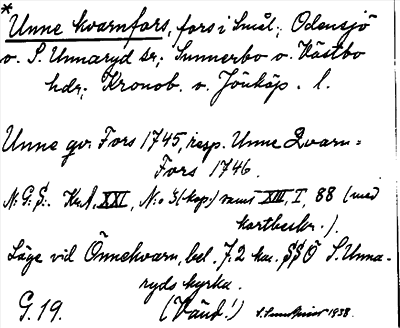 * Unne kvarnfors, fors i Smål.; Odensjö
o. S. Unnaryd sr; Sunnerbo o. Västbo
hdr; Kronob. o. Jönköp. l.
Unne qv. Fors 1745, resp. Unne Qvarn=
Fors 1746.
N:o 3 (kop.) samt XIII, I, 88 (med
kartbeskr.).
Läge vid Önnekvarn, bel. 7.2 km. SSÖ S. Unna-
ryds kyrka.
G. 19. (Vänd!) 1938.